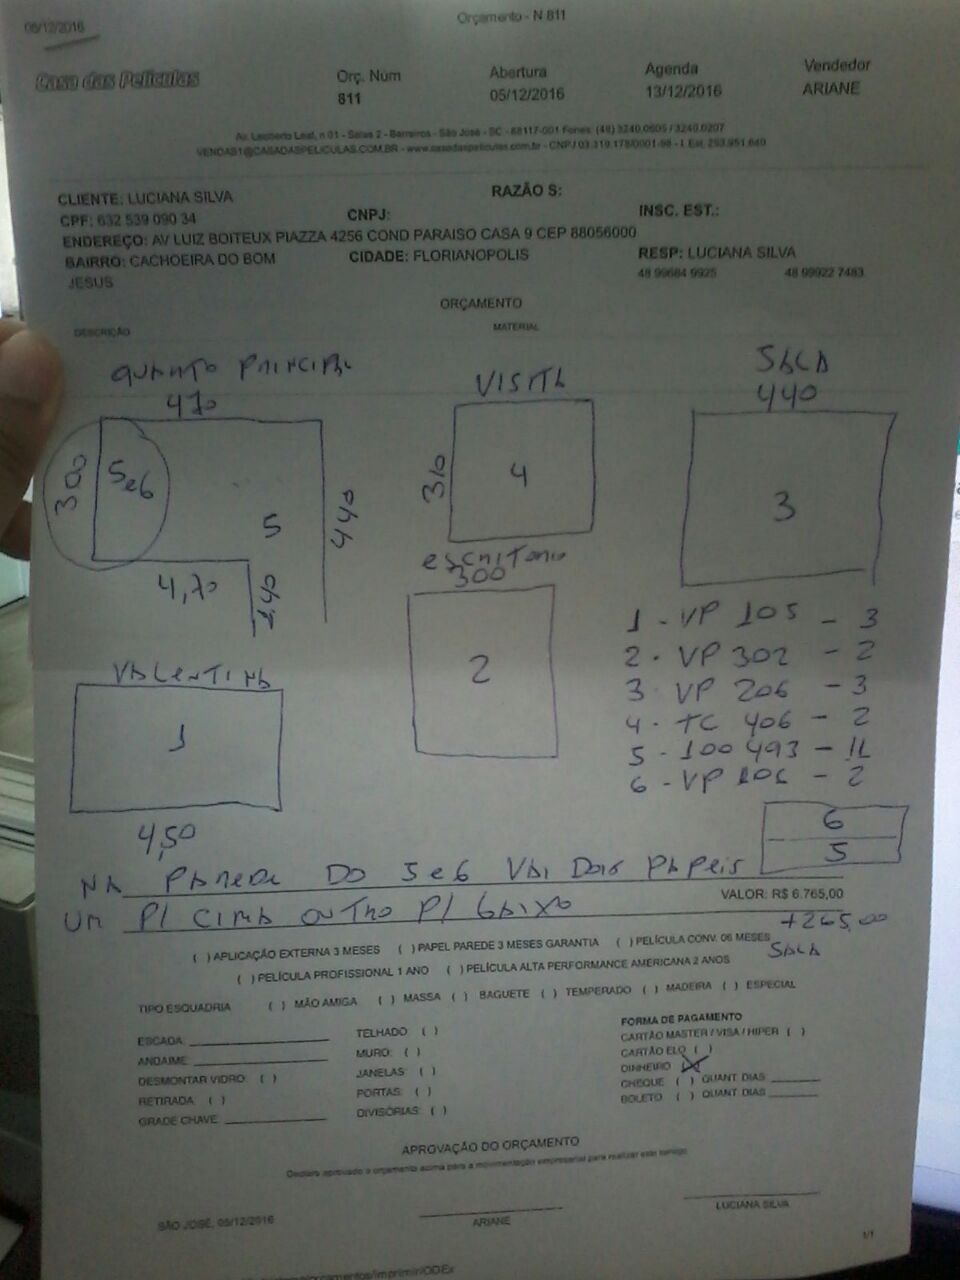 05/12/2016
Orçamento - N 811
Casa das Películas
Orç. Núm
811
Abertura
05/12/2016
Agenda
13/12/2016
Vendedor
ARIANE
Av. Leoberto Leal, n 01 - Salas 2 - Barreiros - São José - SC - 88117-001 Fones: (48) 3240.0605 / 3240.0207
VENDAS1@CASADASPELICULAS.COM.BR - www.casadaspeliculas.com.br - CNPJ 03.319.178/0001-98 - I. Est. 253.951.640
CLIENTE: LUCIANA SILVA
RAZÃO S:
CPF: 632 539 090 34
CNPJ:
INSC. EST.:
ENDEREÇO: AV LUIZ BOITEUX PIAZZA 4256 COND PARAISO CASA 9 CEP 88056000
BAIRRO: CACHOEIRA DO BOM JESUS
CIDADE: FLORIANOPOLIS
RESP: LUCIANA SILVA
48 99684 9925
48 99922 7483
ORÇAMENTO
DESCRIÇÃO
MATERIAL
QUARTO PRINCIPAL
470
300
5e6
5
440
4,70
VISITA
310
4
SALA
440
3
ESCRITORIO
300
2
VALENTINA
1
4,50
1 - VP 105 - 3
2 - VP 302 - 2
3 - VP 206 - 3
4 - TC 406 - 2
5 - 100 493 - 11
6 - VP 106 - 2
6
5
NA PAREDE DO 5e6 VAI DOIS PAPEIS
VALOR: R$ 6.765,00
UM P/ CIMA OUTRO P/ BAIXO
+265,00
SALA
( ) APLICAÇÃO EXTERNA 3 MESES ( ) PAPEL PAREDE 3 MESES GARANTIA ( ) PELÍCULA CONV. 06 MESES
( ) PELÍCULA PROFISSIONAL 1 ANO ( ) PELÍCULA ALTA PERFORMANCE AMERICANA 2 ANOS
TIPO ESQUADRIA ( ) MÃO AMIGA ( ) MASSA ( ) BAGUETE ( ) TEMPERADO ( ) MADEIRA ( ) ESPECIAL
ESCADA:
ANDAIME:
DESMONTAR VIDRO: ( )
RETIRADA ( )
GRADE CHAVE:
TELHADO: ( )
MURO: ( )
JANELAS: ( )
PORTAS: ( )
DIVISÓRIAS: ( )
FORMA DE PAGAMENTO
CARTÃO MASTER / VISA / HIPER ( )
CARTÃO ELO ( )
DINHEIRO (X)
CHEQUE ( ) QUANT. DIAS
BOLETO ( ) QUANT. DIAS
APROVAÇÃO DO ORÇAMENTO
Declaro aprovado o orçamento acima para a movimentação empresarial para realizar este serviço
SÃO JOSÉ, 05/12/2016
ARIANE
LUCIANA SILVA
1/1